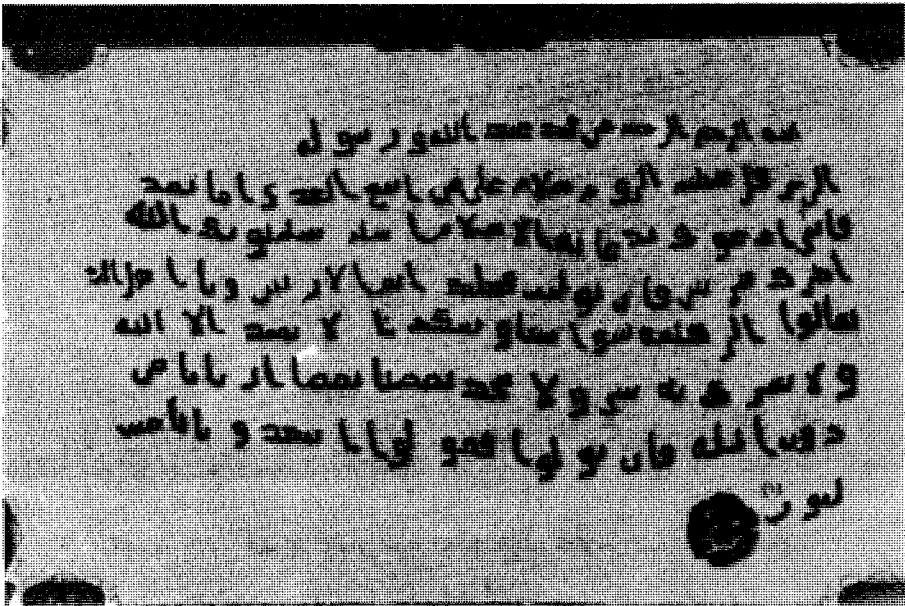 الله الرحمن الرحيم من محمد عبد الله ورسوله
الى هرقل عظيم الروم سلام على من اتبع الهدى اما بعد
فانى ادعوك بدعاية الاسلام اسلم تسلم يوتك الله
اجرك مرتين فان توليت فعليك اثم الاريسين ويا اهل
تعالوا الى كلمة سوا بيننا وبينكم ا لا نعبد الا الله
ولا نشرك به شى ولا يتخذ بعضنا بعضا اربابا من
دون الله فان تولوا فقولوا اشهدوا بانا مس
لمون